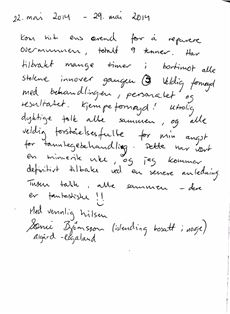 22. mai 2014 - 29. mai 2014
Kom hit ens ærend for å reparere
overmunnen, totalt 9 tenner. Har
tilbrakt mange timer i bortimot alle
stolene innover gangen ☺ Veldig fornøyd
med behandlingen, personalet og
resultatet. Kjempefornøyd! Utrolig
dyktige folk alle sammen, og alle
veldig forståelsesfulle for min angst
for tannlegebehandling. Dette har vært
en minnerik uke, og jeg kommer
definitivt tilbake ved en senere anledning
Tusen takk, alle sammen - dere
er fantastiske !!
Med vennlig hilsen
Björnsson (islending bosatt i norge)